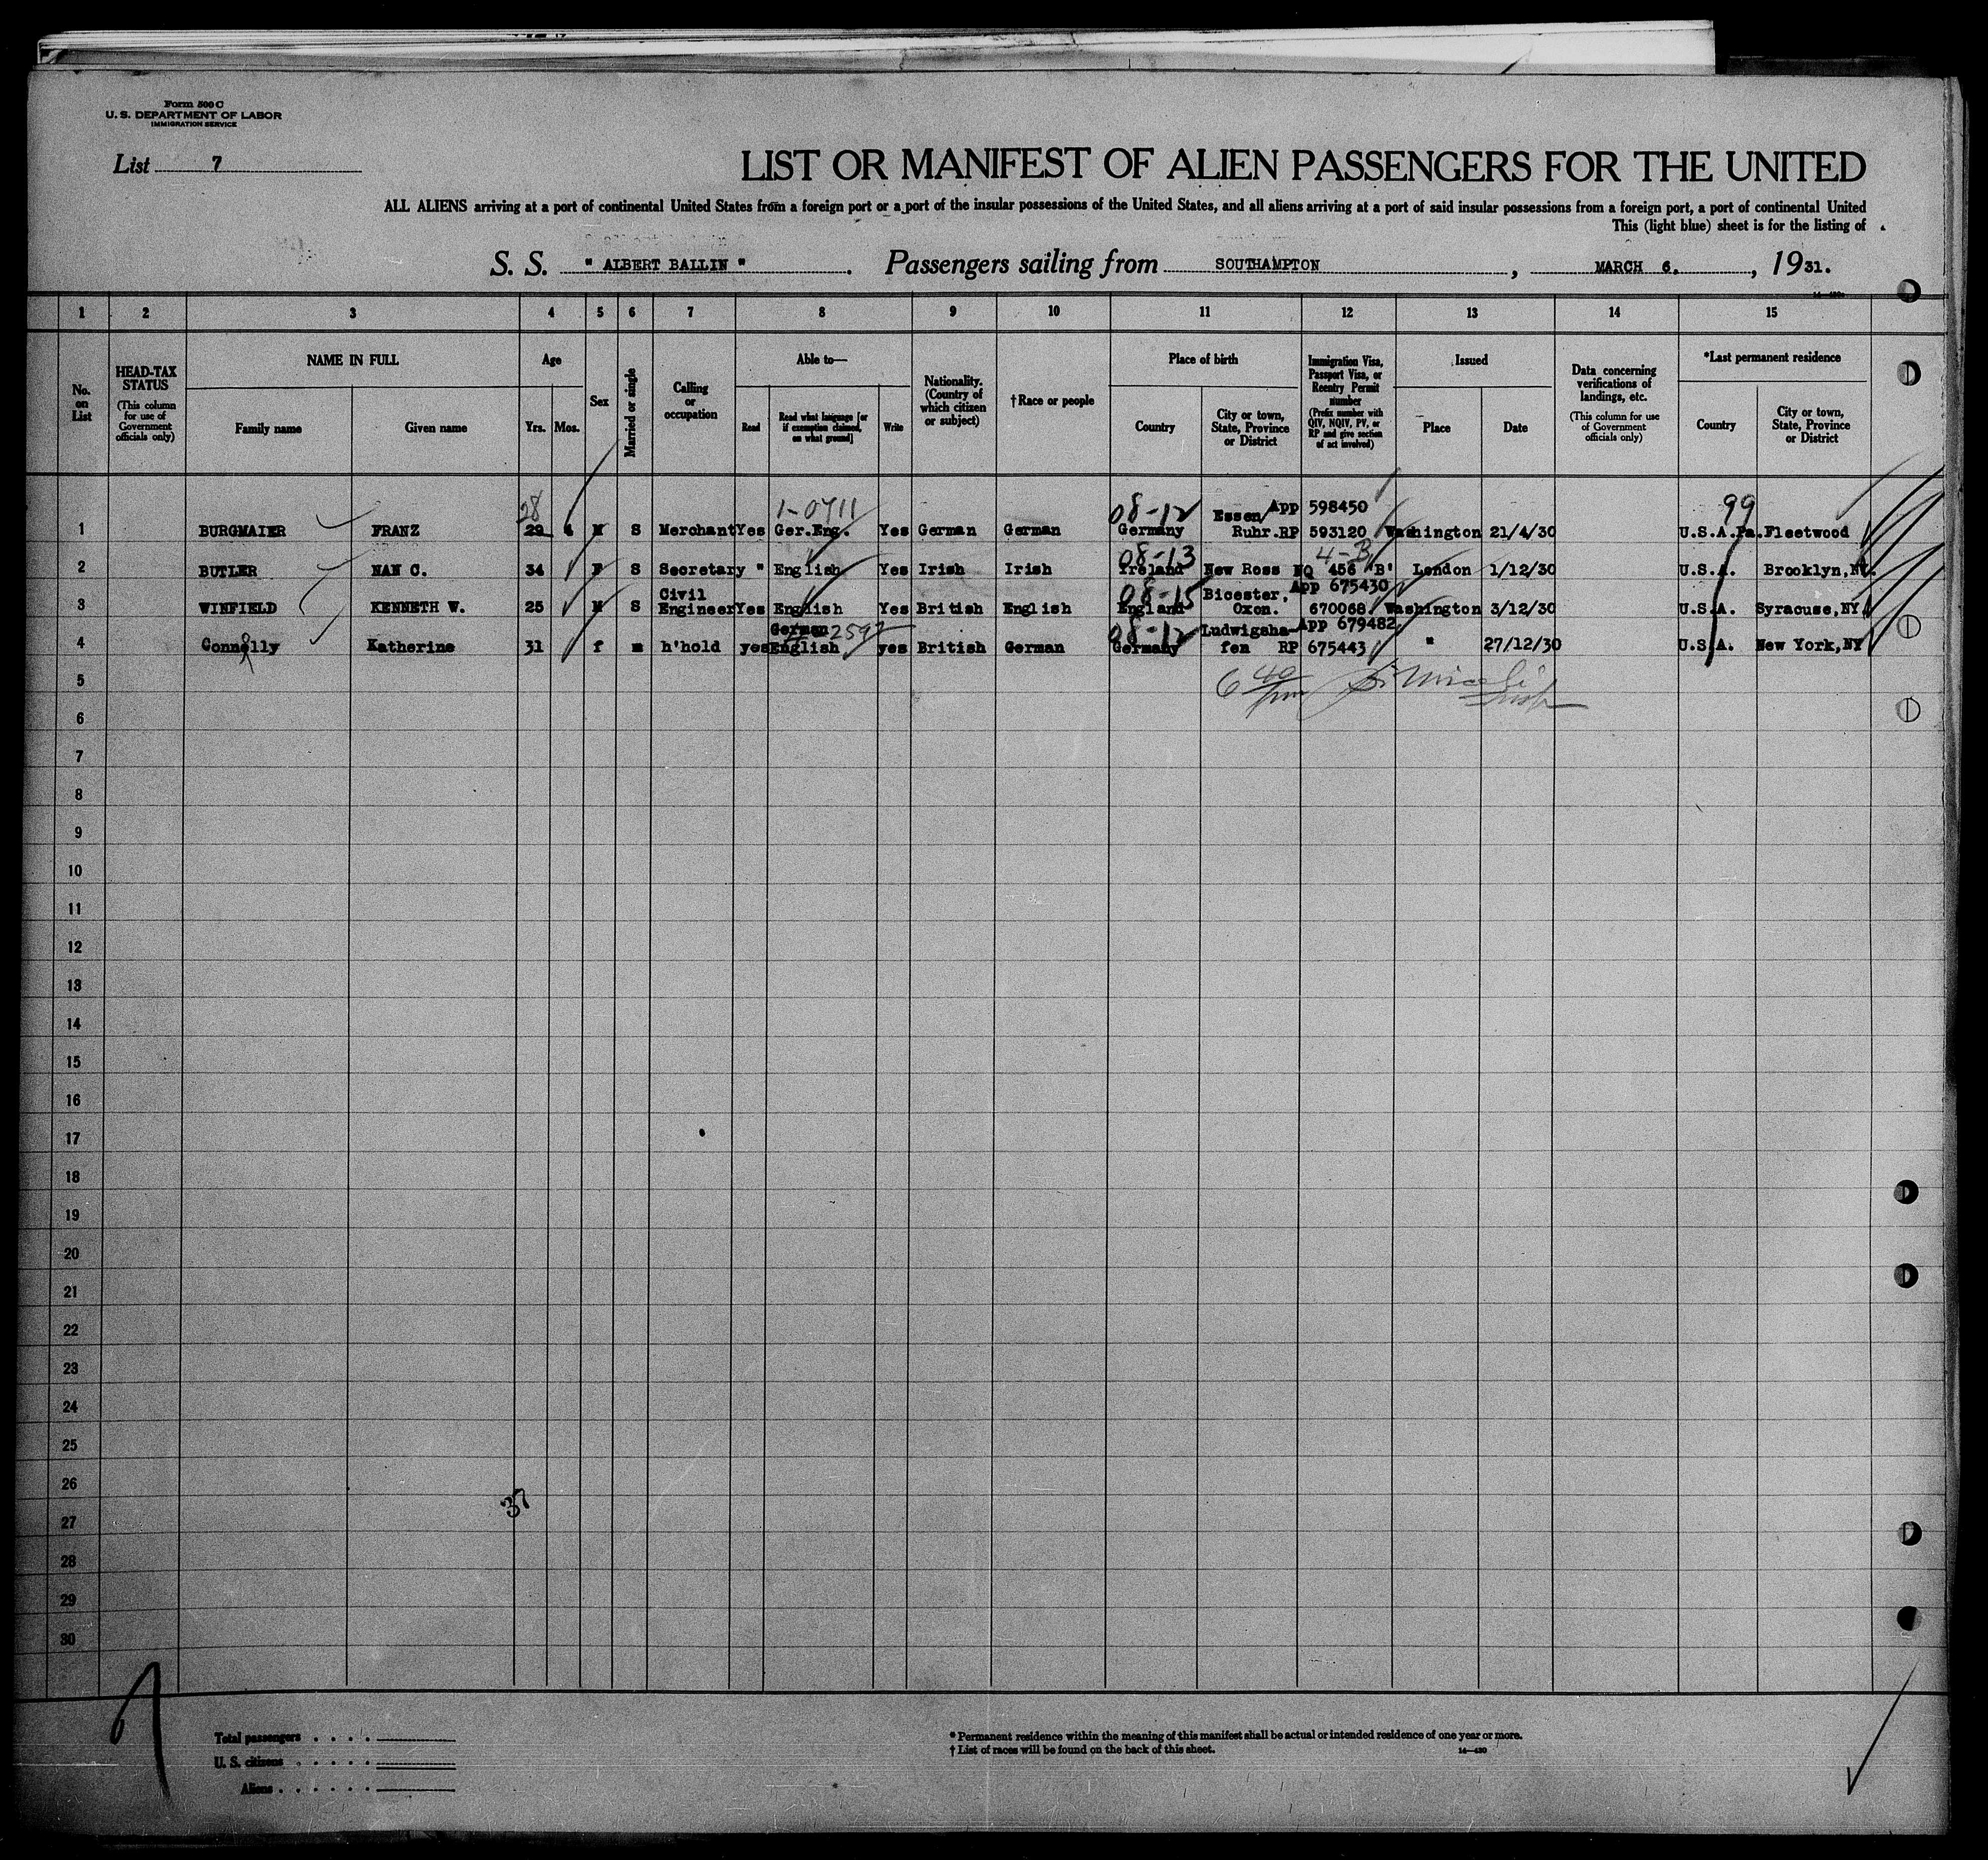 Form 500 C
U. S. DEPARTMENT OF LABOR
IMMIGRATION SERVICE
List 7
LIST OR MANIFEST OF ALIEN PASSENGERS FOR THE UNITED
ALL ALIENS arriving at a port of continental United States from a foreign port or a port of the insular possessions of the United States, and all aliens arriving at a port of said insular possessions from a foreign port, a port of continental United
This (light blue) sheet is for the listing of
S. S. " ALBERT BALLIN " . Passengers sailing from SOUTHAMPTON , MARCH 6. , 1931.
1 2 3 4 5 6 7 8 9 10 11 12 13 14 15
No. on List
HEAD-TAX STATUS
(This column for use of Government officials only)
NAME IN FULL
Family name Given name
Age
Yrs. Mos.
Sex
Married or single
Calling or occupation
Able to—
Read
Read what language [or if exemption claimed, on what ground]
Write
Nationality. (Country of which citizen or subject)
†Race or people
Place of birth
Country
City or town, State, Province or District
Immigration Visa, Passport Visa, or Reentry Permit number
(Prefix number with QIV, NQIV, PV, or RP and give section of act involved)
Issued
Place Date
Data concerning verifications of landings, etc.
(This column for use of Government officials only)
*Last permanent residence
Country
City or town, State, Province or District
28 1-0711 08-12 Essen/ App 598450 99
1 BURGMAIER FRANZ 29 4 M S Merchant Yes Ger.Eng. Yes German German Germany Ruhr. RP 593120 Washington 21/4/30 U.S.A. Pa. Fleetwood
08-13 4-B
2 BUTLER NAN C. 34 F S Secretary " English Yes Irish Irish Ireland New Ross NQ 456 'B' London 1/12/30 U.S.A. Brooklyn, NY.
Civil 08-15 Bicester, App 675430
3 WINFIELD KENNETH W. 25 M S Engineer Yes English Yes British English England Oxon. 670068 Washington 3/12/30 U.S.A. Syracuse, NY.
German 2592 08-12 Ludwigsha- App 679482
4 Connolly Katherine 31 f m h'hold yes English yes British German Germany fen RP 675443 " 27/12/30 U.S.A. New York, NY
5 6 40/pm
6
7
8
9
10
11
12
13
14
15
16
17
18
19
20
21
22
23
24
25
26
37
27
28
29
30
Total passengers
U. S. citizens
Aliens
* Permanent residence within the meaning of this manifest shall be actual or intended residence of one year or more.
† List of races will be found on the back of this sheet. 14—430